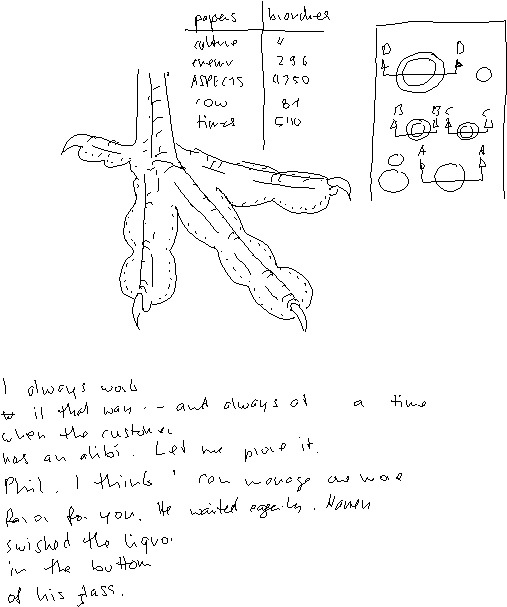 papers brochures
culture 4
enemy 296
ASPECTS 9750
row 81
times 540
D D
B B C C
A A
I always work
it that way -- and always at a time
when the customer
has an alibi. Let me prove it.
Phil. I think I can manage one more
favor for you. He waited eagerly. Haven
swished the liquor
in the bottom
of his glass.